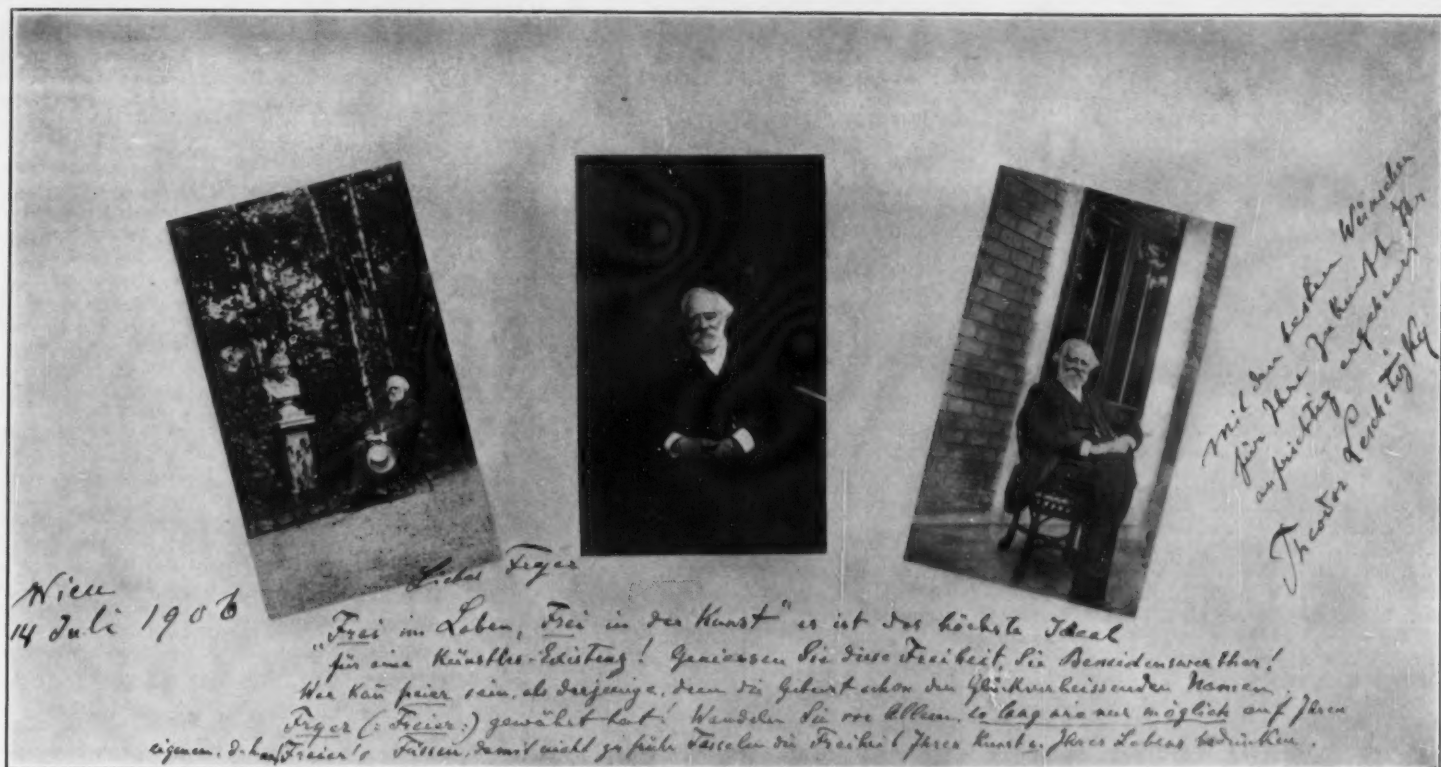 Wien
14 Juli 1906
Lieber Fryer
"Frei im Leben, Frei in der Kunst" es ist das höchste Ideal
für eine Künstler-Existenz! Geniessen Sie diese Freiheit, Sie Beneidenswerther!
Wer kañ freier sein, als derjenige, dem die Geburt schon den Glückverheissenden Namen
Fryer (: Freier :) gewährt hat! Wandeln Sie vor Allem, so lang wie nur möglich auf Ihren
eigenen, Freier's Füssen, damit nicht zu frühe Fesseln die Freiheit Ihrer Kunst u. Ihres Lebens bedrücken.
Mit den besten Wünschen
für Ihre Zukunft Ihr
aufrichtig ergebener
Theodor Leschetizky